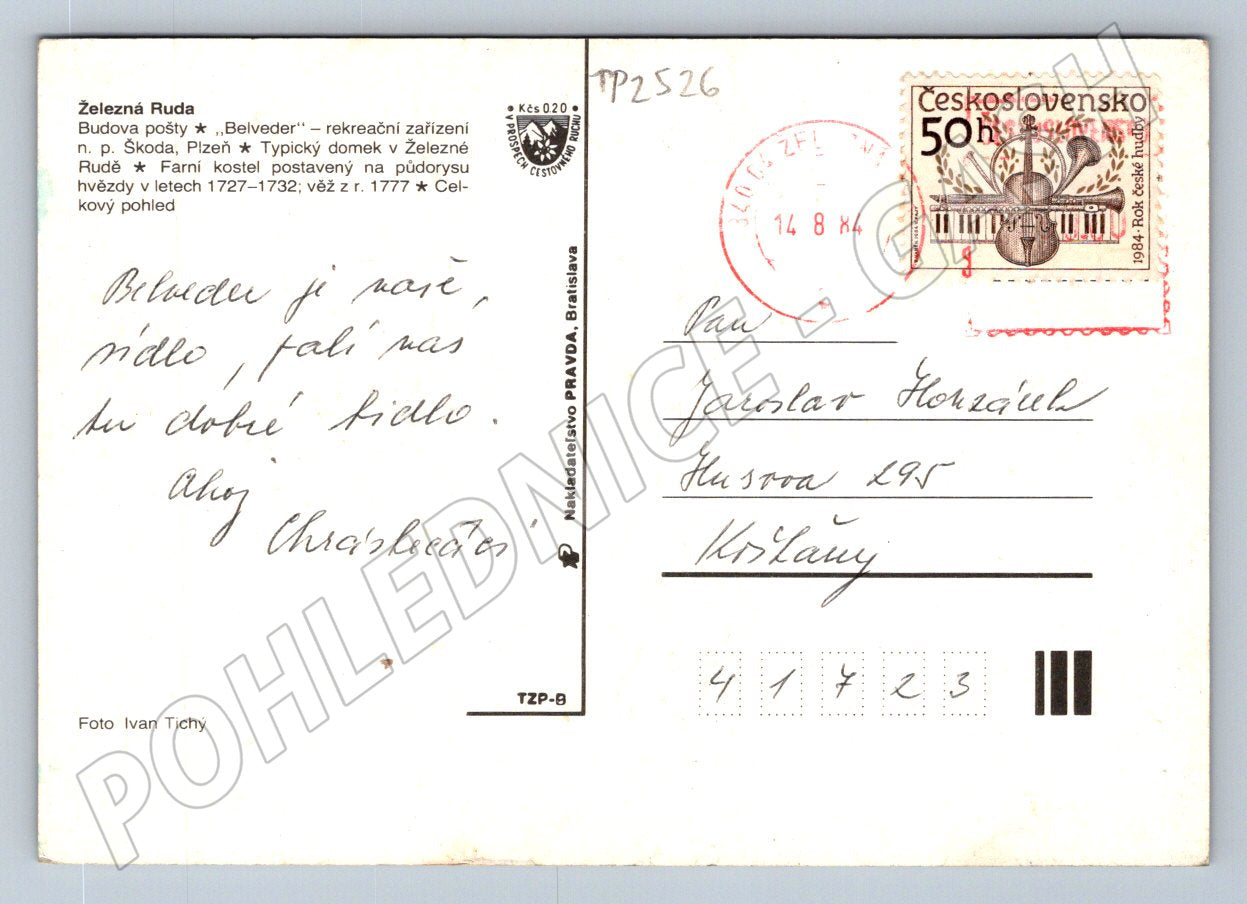 TP2526
Železná Ruda
Budova pošty ★ ,,Belveder" – rekreační zařízení
n. p. Škoda, Plzeň ★ Typický domek v Železné
Rudě ★ Farní kostel postavený na půdorysu
hvězdy v letech 1727–1732; věž z r. 1777 ★ Cel-
kový pohled
• Kčs 0.20 •
V PROSPĚCH CESTOVNÉHO RUCHU
Belveder je naše,
sídlo, pálí nás
tu dobré lidlo.
Ahoj
Foto Ivan Tichý
Nakladateľstvo PRAVDA, Bratislava
TZP-B
Československo
50h
1984 · Rok české hudby
340 04
14 8 84
Pan
Jaroslav Honzáček
Husova 295
Košťany
41723
POHLEDNICE